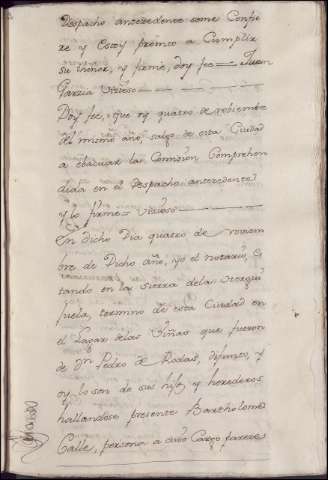 Despacho antecedente some Confie
re y Estoy prompto a Cumplir
su thenor, y firme, doy fee = Juan
Garzia Vrioso
Doy fee, que oy quatro de nobiembre
del mismo año, salgo de esta Ciudad
a ebacuar la Comision Comprehen
dida en el Despacho antecedente
y lo firme =
En dicho Dia quatro de noviem
bre de Dicho año, yo el notario, es
tando en la sierra de la
juela, termino de esta Ciudad en
el Lagar de las Viñas que fueron
de Dn Pedro de Rodas, difunto, y
oy lo son de sus hijos y herederos
hallandose presente Bartholome
Calle, persona a cuio Cargo parece